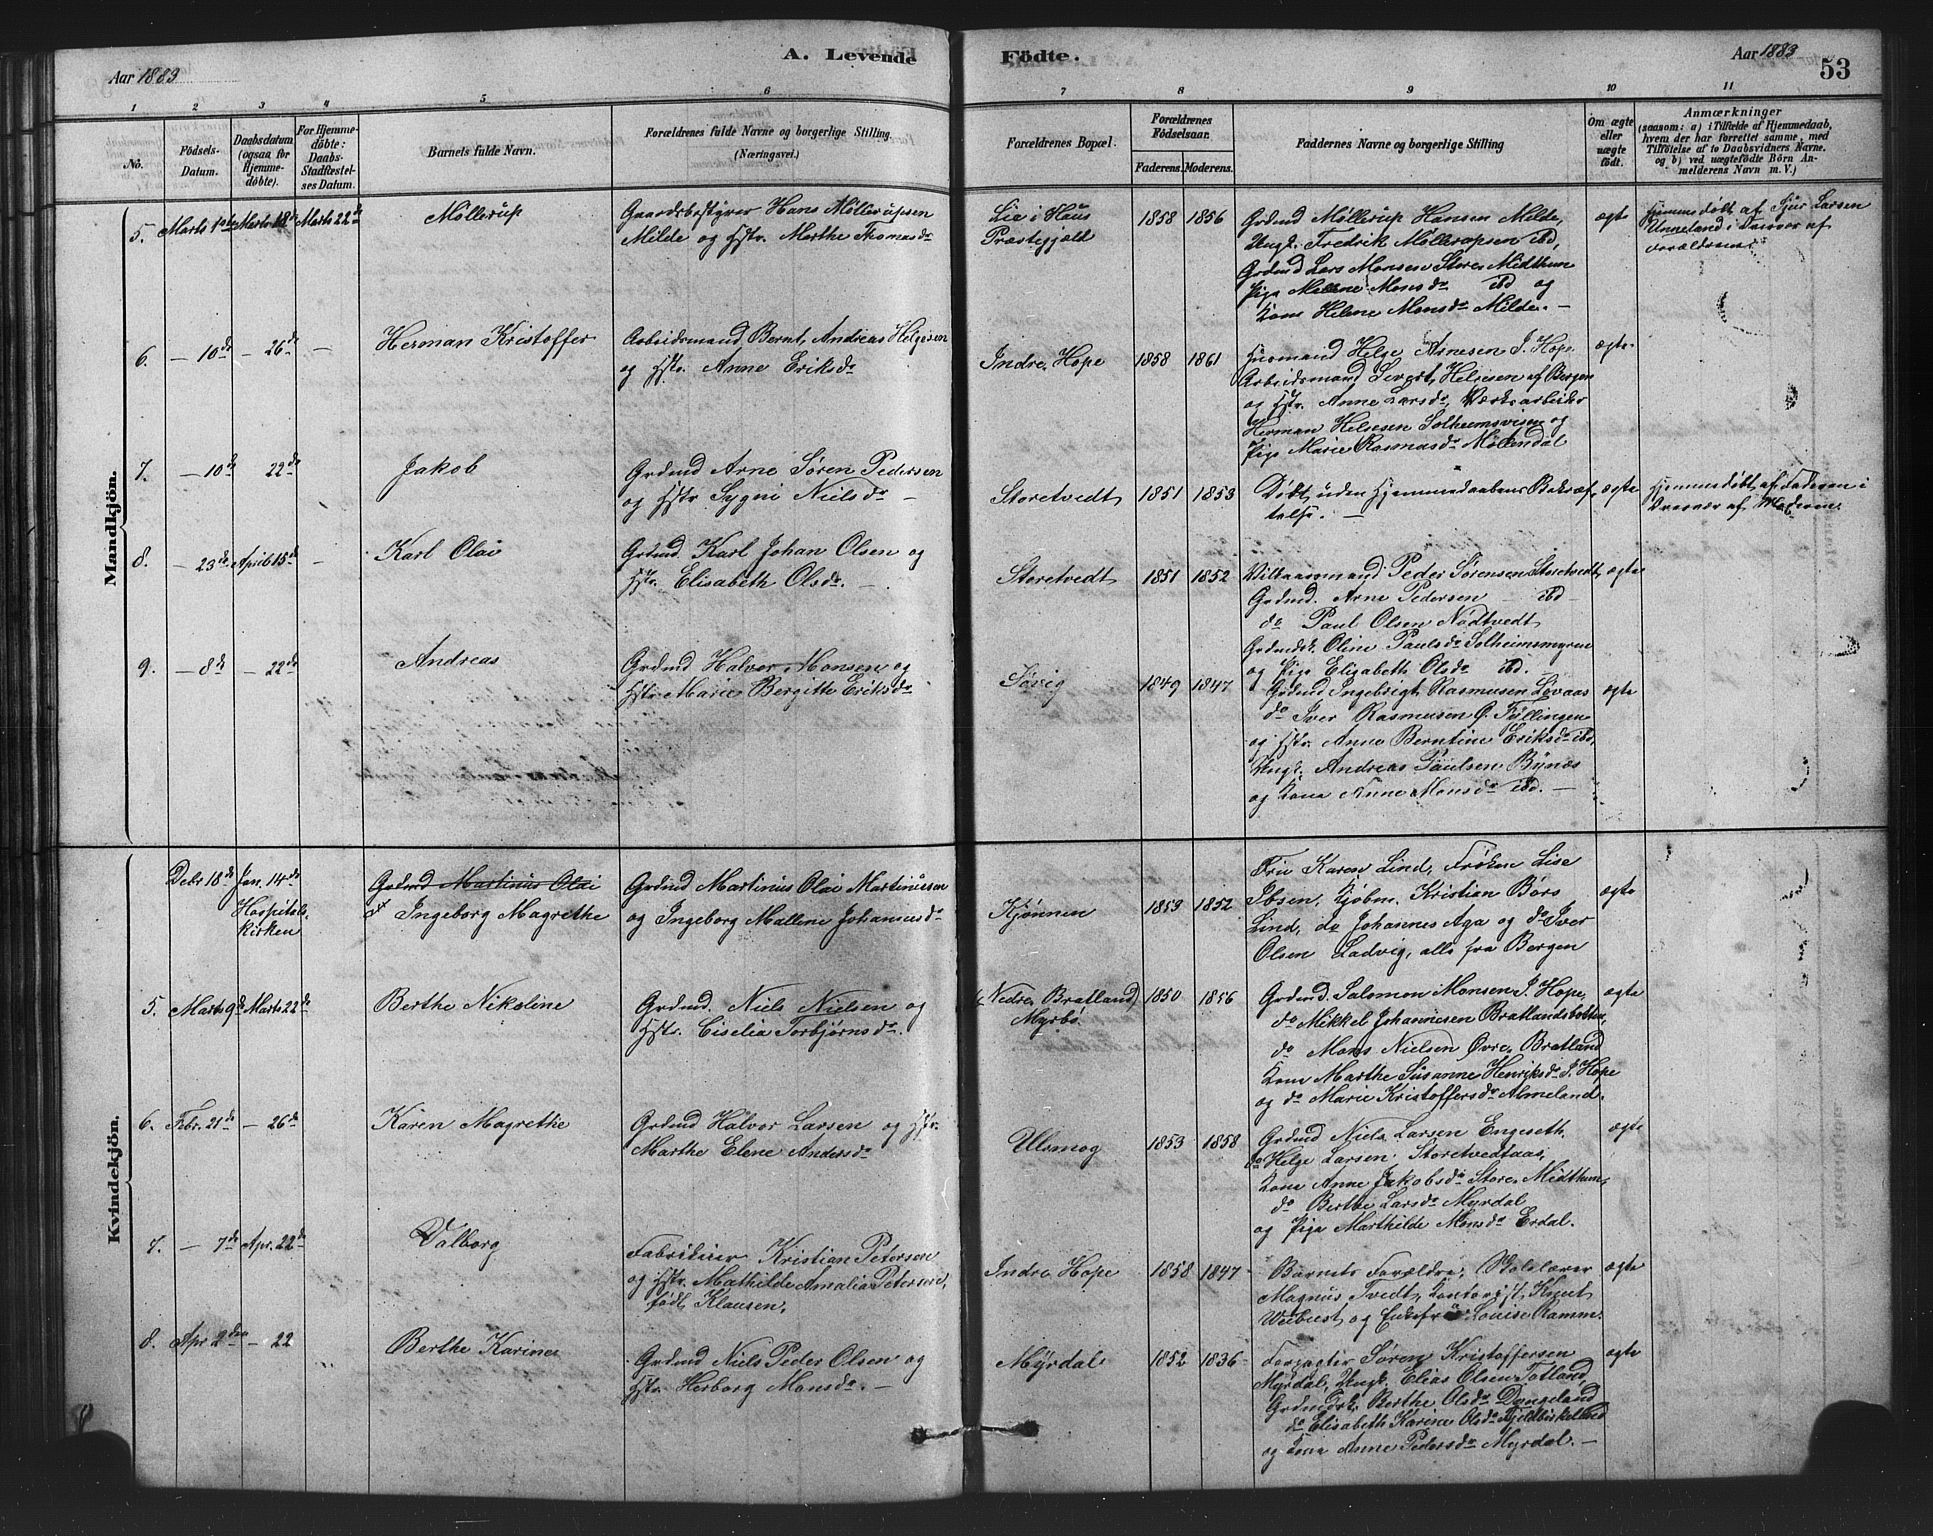 Aar 1883
A. Levende
Födte.
Aar 1883
53
1 2 3 4 5 6 7 8 9 10 11
No.
Födsels-
Datum.
Daabsdatum
(ogsaa for
Hjemme-
döbte).
For Hjemme-
döbte:
Daabs-
Stadfæstel-
ses Datum.
Barnets fulde Navn.
Forældrenes fulde Navne og borgerlige Stilling.
(Næringsvei.)
Forældrenes Bopæl.
Forældrenes
Födselsaar.
Faderens. Moderens.
Faddernes Navne og borgerlige Stilling
Om ægte
eller
uægte
födt.
Anmærkninger
(saasom: a) i Tilfælde af Hjemmedaab,
hvem der har forrettet samme, med
Tilföielse af to Daabsvidners Navne,
og b) ved uægtefödte Börn An-
melderens Navn m. V.)
Mandkjön.
5. Marts 1ste Marts 18de Marts 22de
Møllerup
Gaardsbestyrer Hans Møllerupsen
Milde og Hstr. Marthe Thomasdr
Lie i Haus
Præstegjeld
1858 1856
Grdmd Møllerup Hansen Milde,
Ungk. Fredrik Møllerupsen ibd,
Grdmd Lars Monsen Store Midthun
Pige Malene Monsdr ibd og
Kone Helene Monsdr Milde. —
ægte
Hjemmedøbt af Sjur Larsen
Unneland i Nærvær af
Forældrene.
6. — 10de — 26de —
Herman Kristoffer
Arbeidsmand Bernt Andreas Helgesen
og Hstr. Anne Eriksdr
Indre Hope
1858 1861
Husmand Helge Arnesen I. Hope
Arbeidsmand Sivert Helgesen af Bergen
og Hstr. Anne Larsdr, Værksarbeider
Herman Helgesen Solheimsvigen og
Pige Marie Rasmusdr Møllendal
ægte
7. — 10de 22de
Jakob
Grdmd Arne Søren Pedersen
og Hstr Sygni Nielsdr —
Storetvedt
1851 1853
Døbt uden Hjemmedaabens Bekræf-
telse. —
ægte
Hjemmedøbt af Faderen i
Nærvær af Moderen.
8. — 23de April 15de —
Karl Olai
Grdmd. Karl Johan Olsen og
Hstr. Elisabeth Olsdr. —
Storetvedt
1851 1852
Vilkaarsmand Peder Sørensen Storetvedt,
Grdmd. Arne Pedersen — ibd —
do Paul Olsen Nødtvedt
Grdmdsk. Oline Paulsdr Solheimsmyren
og Pige Elisabeth Olsdr ibd.
ægte
9. — 8de — 22de
Andreas
Grdmd Halvor Monsen og
Hstr. Marie Bergitte Eriksdr
Søvig
1849 1847
Grdmd Ingebrigt Rasmusen Lovaas
do Iver Rasmusen Ø. Tøllingen
og Hstr. Anne Berntine Eriksdr ibd,
Ungk. Andreas Paulsen Bynæs
og Kone Anne Monsdr ibd. —
ægte
Kvindekjön.
Debr 18de Jan. 14de
Hospitals-
kirken
Grdmd Martinus Olai
Ingeborg Magrethe
Grdmd Martinus Olai Martinusen
og Ingeborg Mallene Johannesdr
Kjønnen
1853 1852
Fru Karen Lind, Frøken Lise
Ibsen, Kjøbm. Kristian Børs
Lind, do Johannes Aga og do Iver
Olsen Ladvig, alle fra Bergen
ægte
5. Marts 9de Marts 22de
Berthe Nikoline
Grdmd. Niels Nielsen og
Hstr. Ciselia Torbjørnsdr.
Nedre Bratland
Myrbø.
1850 1856
Grdmd. Salomon Monsen I. Hope,
do Mikkel Johannesen Bratlandsbolten,
do Mons Nielsen Øvre Bratland
Kone Marthe Susanne Henriksdr I. Hope
og do Marie Kristoffersdr Almeland.
ægte
6. Febr. 21de — 26de
Karen Magrethe
Grdmd Halvor Larsen og Hstr.
Marthe Elene Andersdr
Ulsmog
1853 1858
Grdmd Niels Larsen Engeseth.
do Helge Larsen Storetvedtaas,
Kone Anne Jakobsdr Store Midthun,
do Berthe Larsdr Myrdal
og Pige Marthilde Monsdr Erdal.
ægte
7. — 7de Apr. 22de
Valborg
Fabrikeier Kristian Petersen
og Hstr. Mathilde Amalia Petersen,
født Klausen.
Indre Hope
1858 1847
Barnets Forældre, Skolelærer
Magnus Tvedt, Kontorist Knut
og Enkefru Louise Ramm.
ægte
8. Apr 2den — 22
Berthe Karine
Grdmd Niels Peder Olsen og
Hstr. Herborg Monsdr. —
Myrdal
1852 1836
Forpagter Søren Kristoffersen
Myrdal, Ungk. Elias Olsen Totland
Grdmdsk. Berthe Olsdr Dyngeland
do Elisabeth Karine Olsdr
og Kone Anne Pedersdr Myrdal. —
ægte